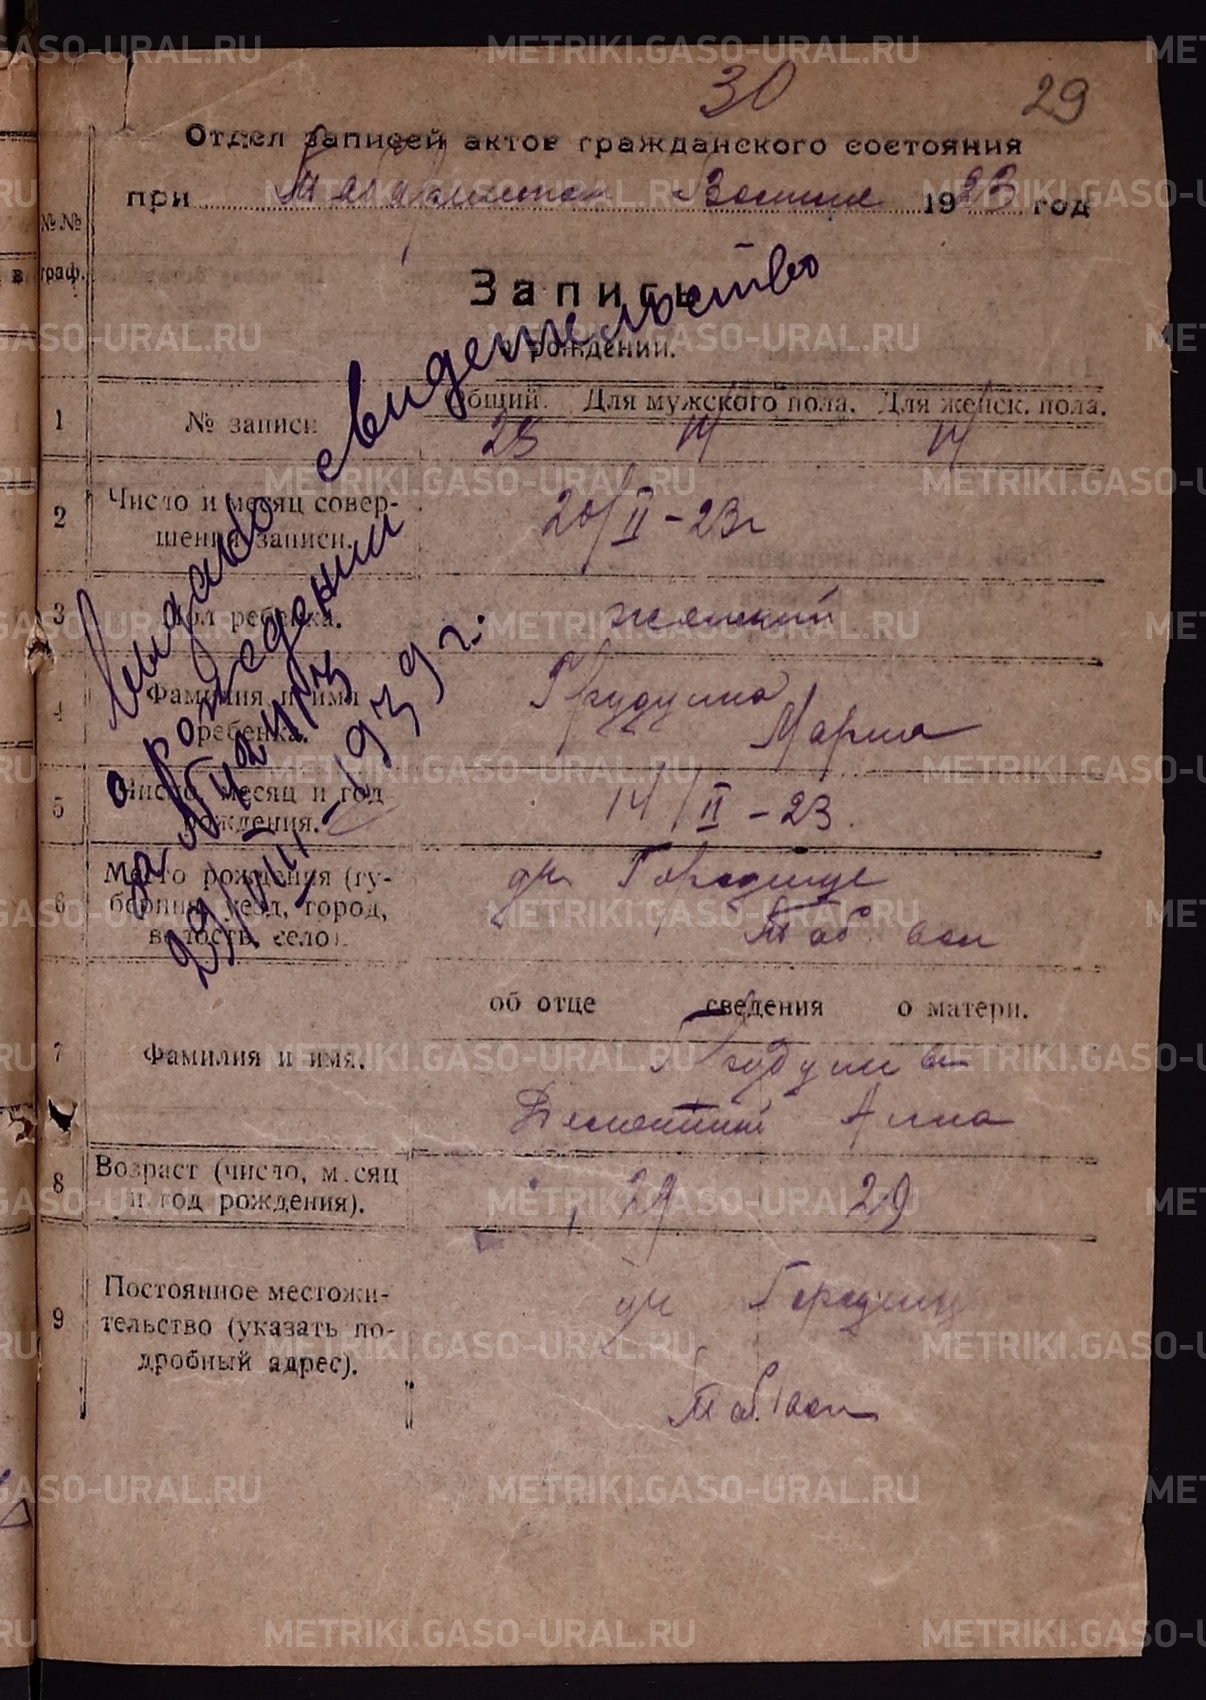 30 29
Отдел записей актов гражданского состояния
при 1923 год
№№
граф.
Запись
о рождении.
Выдано свидетельство
о рождении
29/VII-1939 г.
1 № записи Общий. Для мужского пола. Для женск. пола.
14 14
2 Число и месяц совер-
шения записи. 20/II-23г
3 Пол ребенка. женский
4 Фамилия и имя
ребенка. Мария
5 Число, месяц и год
рождения. 14/II-23.
6 Место рождения (гу-
берния, уезд, город,
волость, село). дн Городище
Таб вол
об отце сведения о матери.
7 Фамилия и имя.
Дементий Анна
8 Возраст (число, месяц
и год рождения). 29 29
9 Постоянное местожи-
тельство (указать по-
дробный адрес). дн Городищ
Таб. вол
METRIKI.GASO-URAL.RU